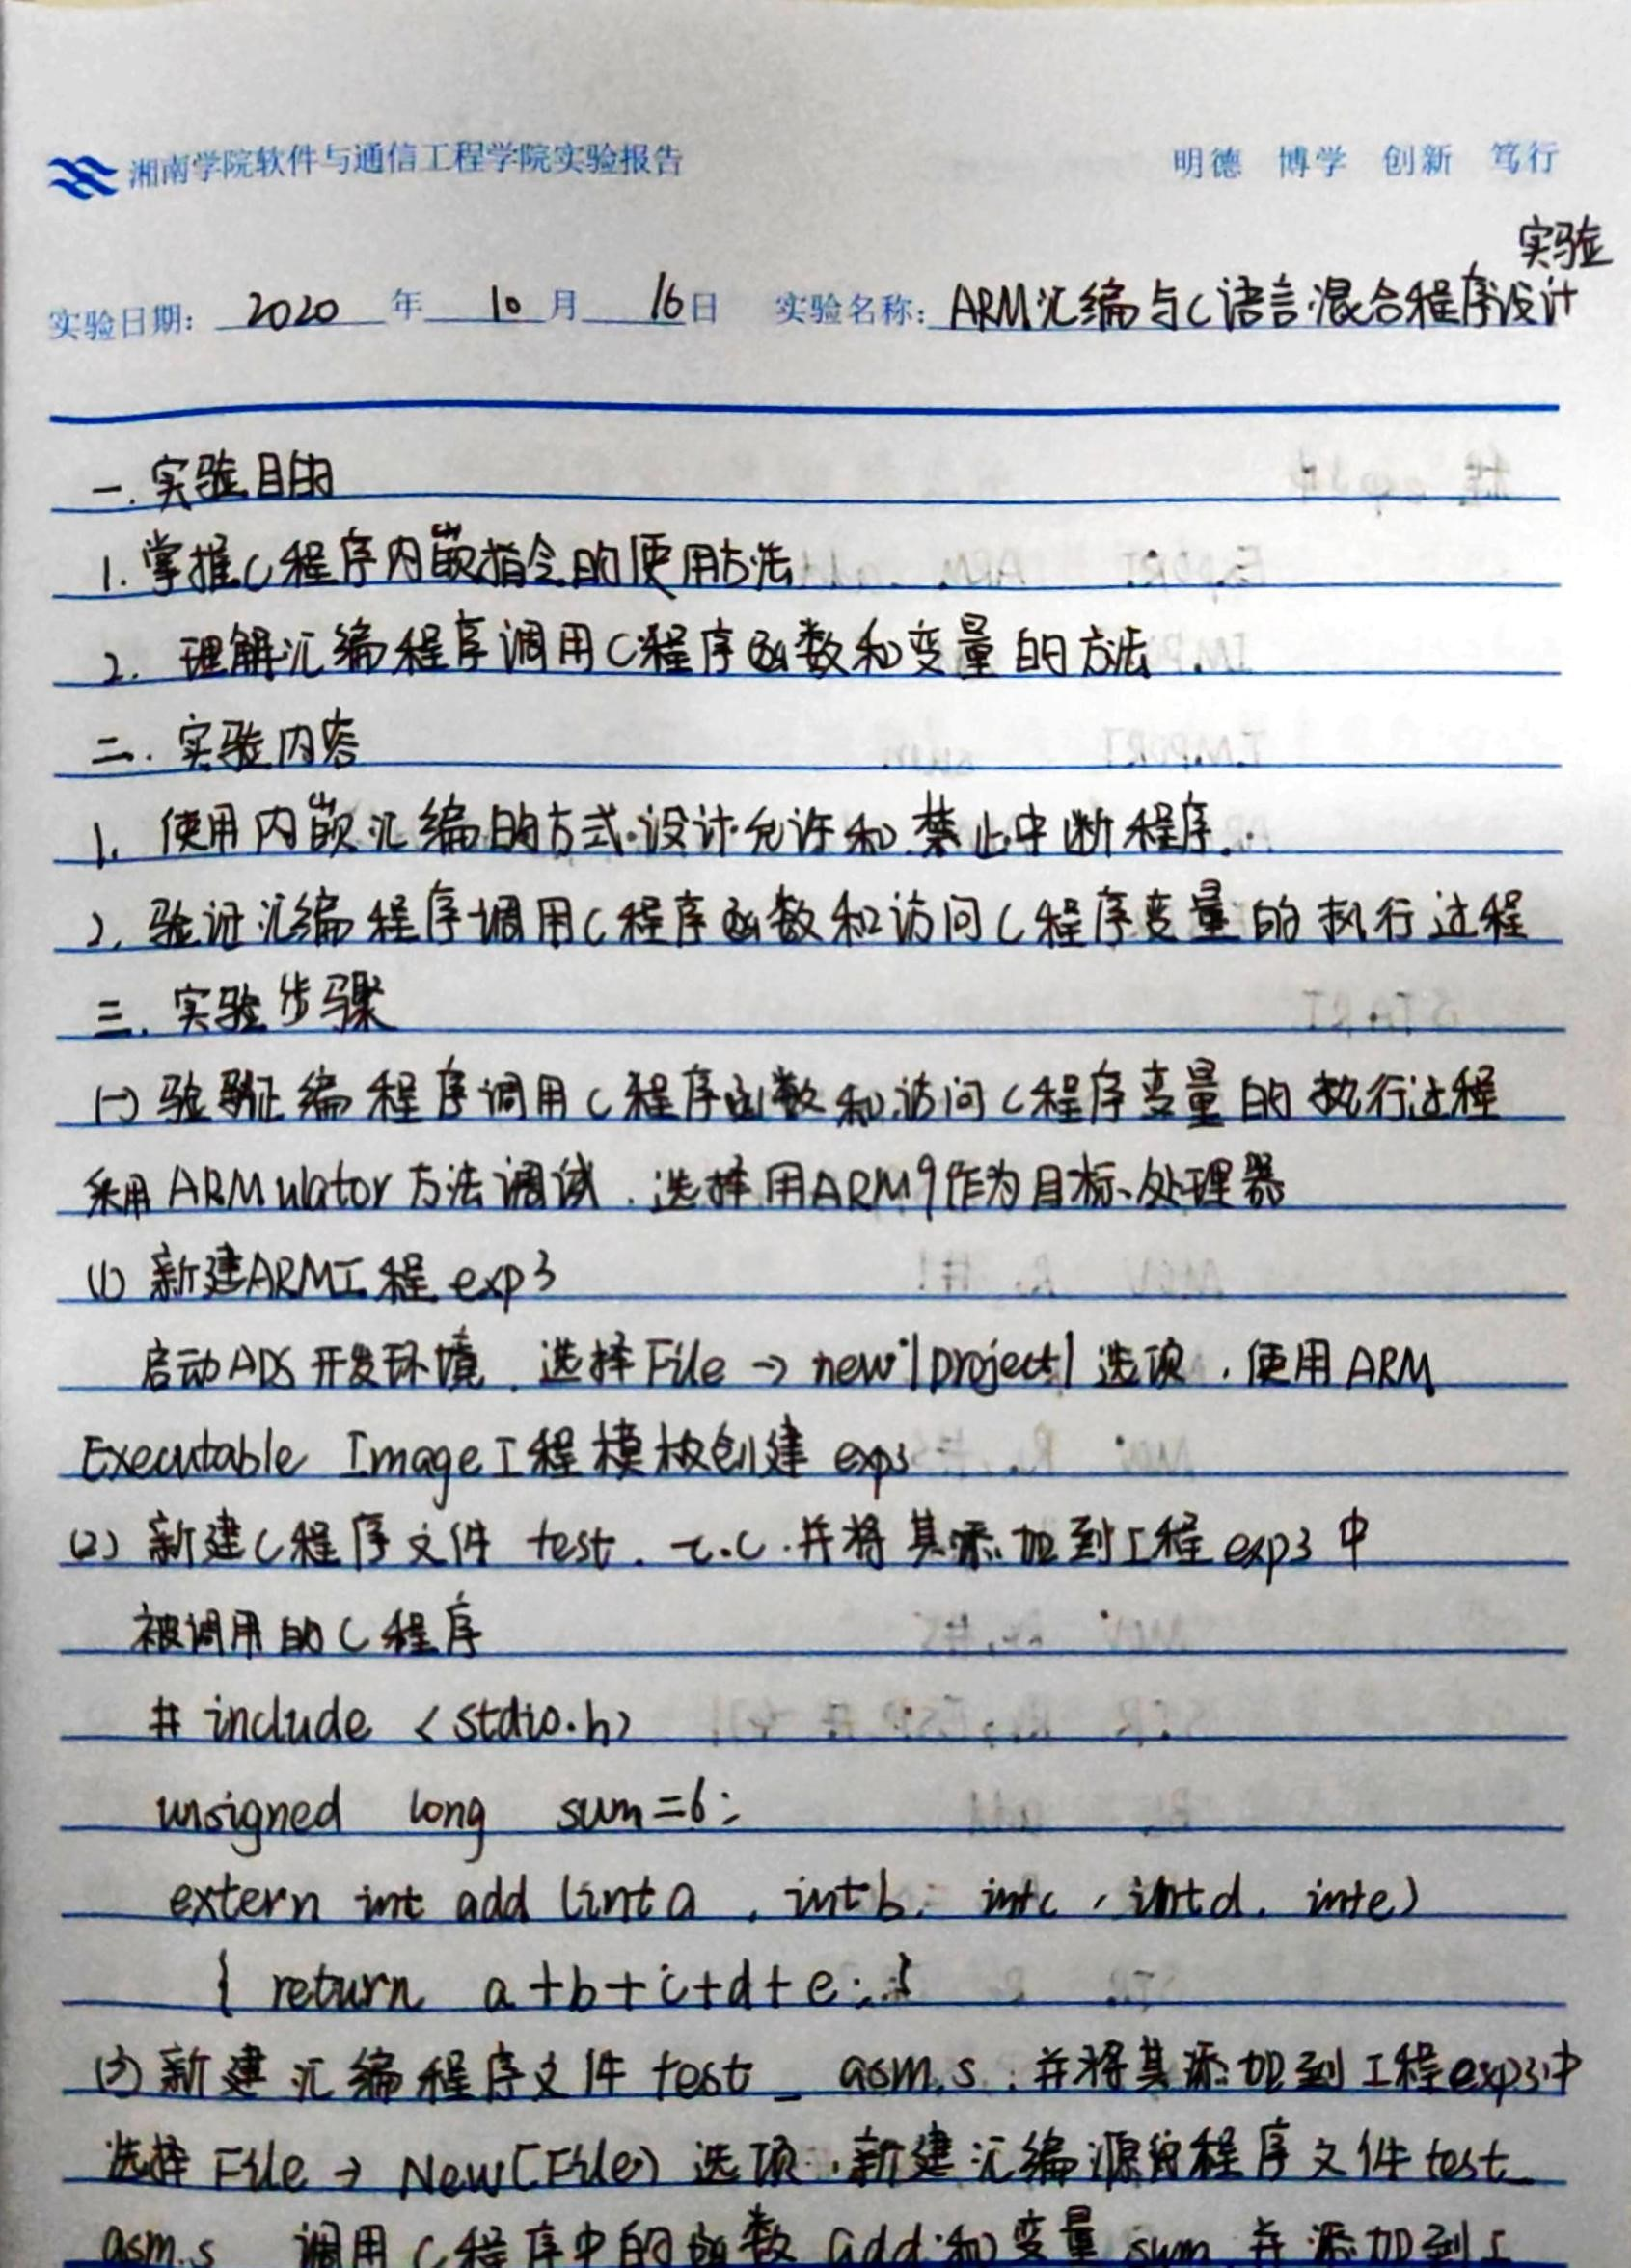 湘南学院软件与通信工程学院实验报告 明德 博学 创新 笃行
实验
实验日期: 2020 年 10 月 16 日 实验名称: ARM汇编与C语言混合程序设计
一.实验目的
1.掌握C程序内嵌指令的使用方法
2. 理解汇编程序调用C程序函数和变量的方法.
二.实验内容
1. 使用内嵌汇编的方式.设计允许和禁止中断程序.
2. 验证汇编程序调用C程序函数和访问C程序变量的执行过程
三.实验步骤
(一)验证编程序调用C程序函数和访问C程序变量的执行过程
采用ARMulator方法调试.选择用ARM9作为目标处理器
(1) 新建ARM工程exp3
启动ADS开发环境.选择File→new|project|选项,使用ARM
Executable Image工程模板创建exp3
(2) 新建C程序文件 test. c.c.并将其添加到工程exp3中
被调用的C程序
# include <stdio.h>
unsigned long sum=6;
extern int add (int a , int b, int c , int d, int e)
{ return a+b+c+d+e; }
(3)新建汇编程序文件 test _ asm.s.并将其添加到工程exp3中
选择File→New(File)选项.新建汇编源程序文件test_
asm.s 调用C程序中的函数add和变量sum.并添加到工